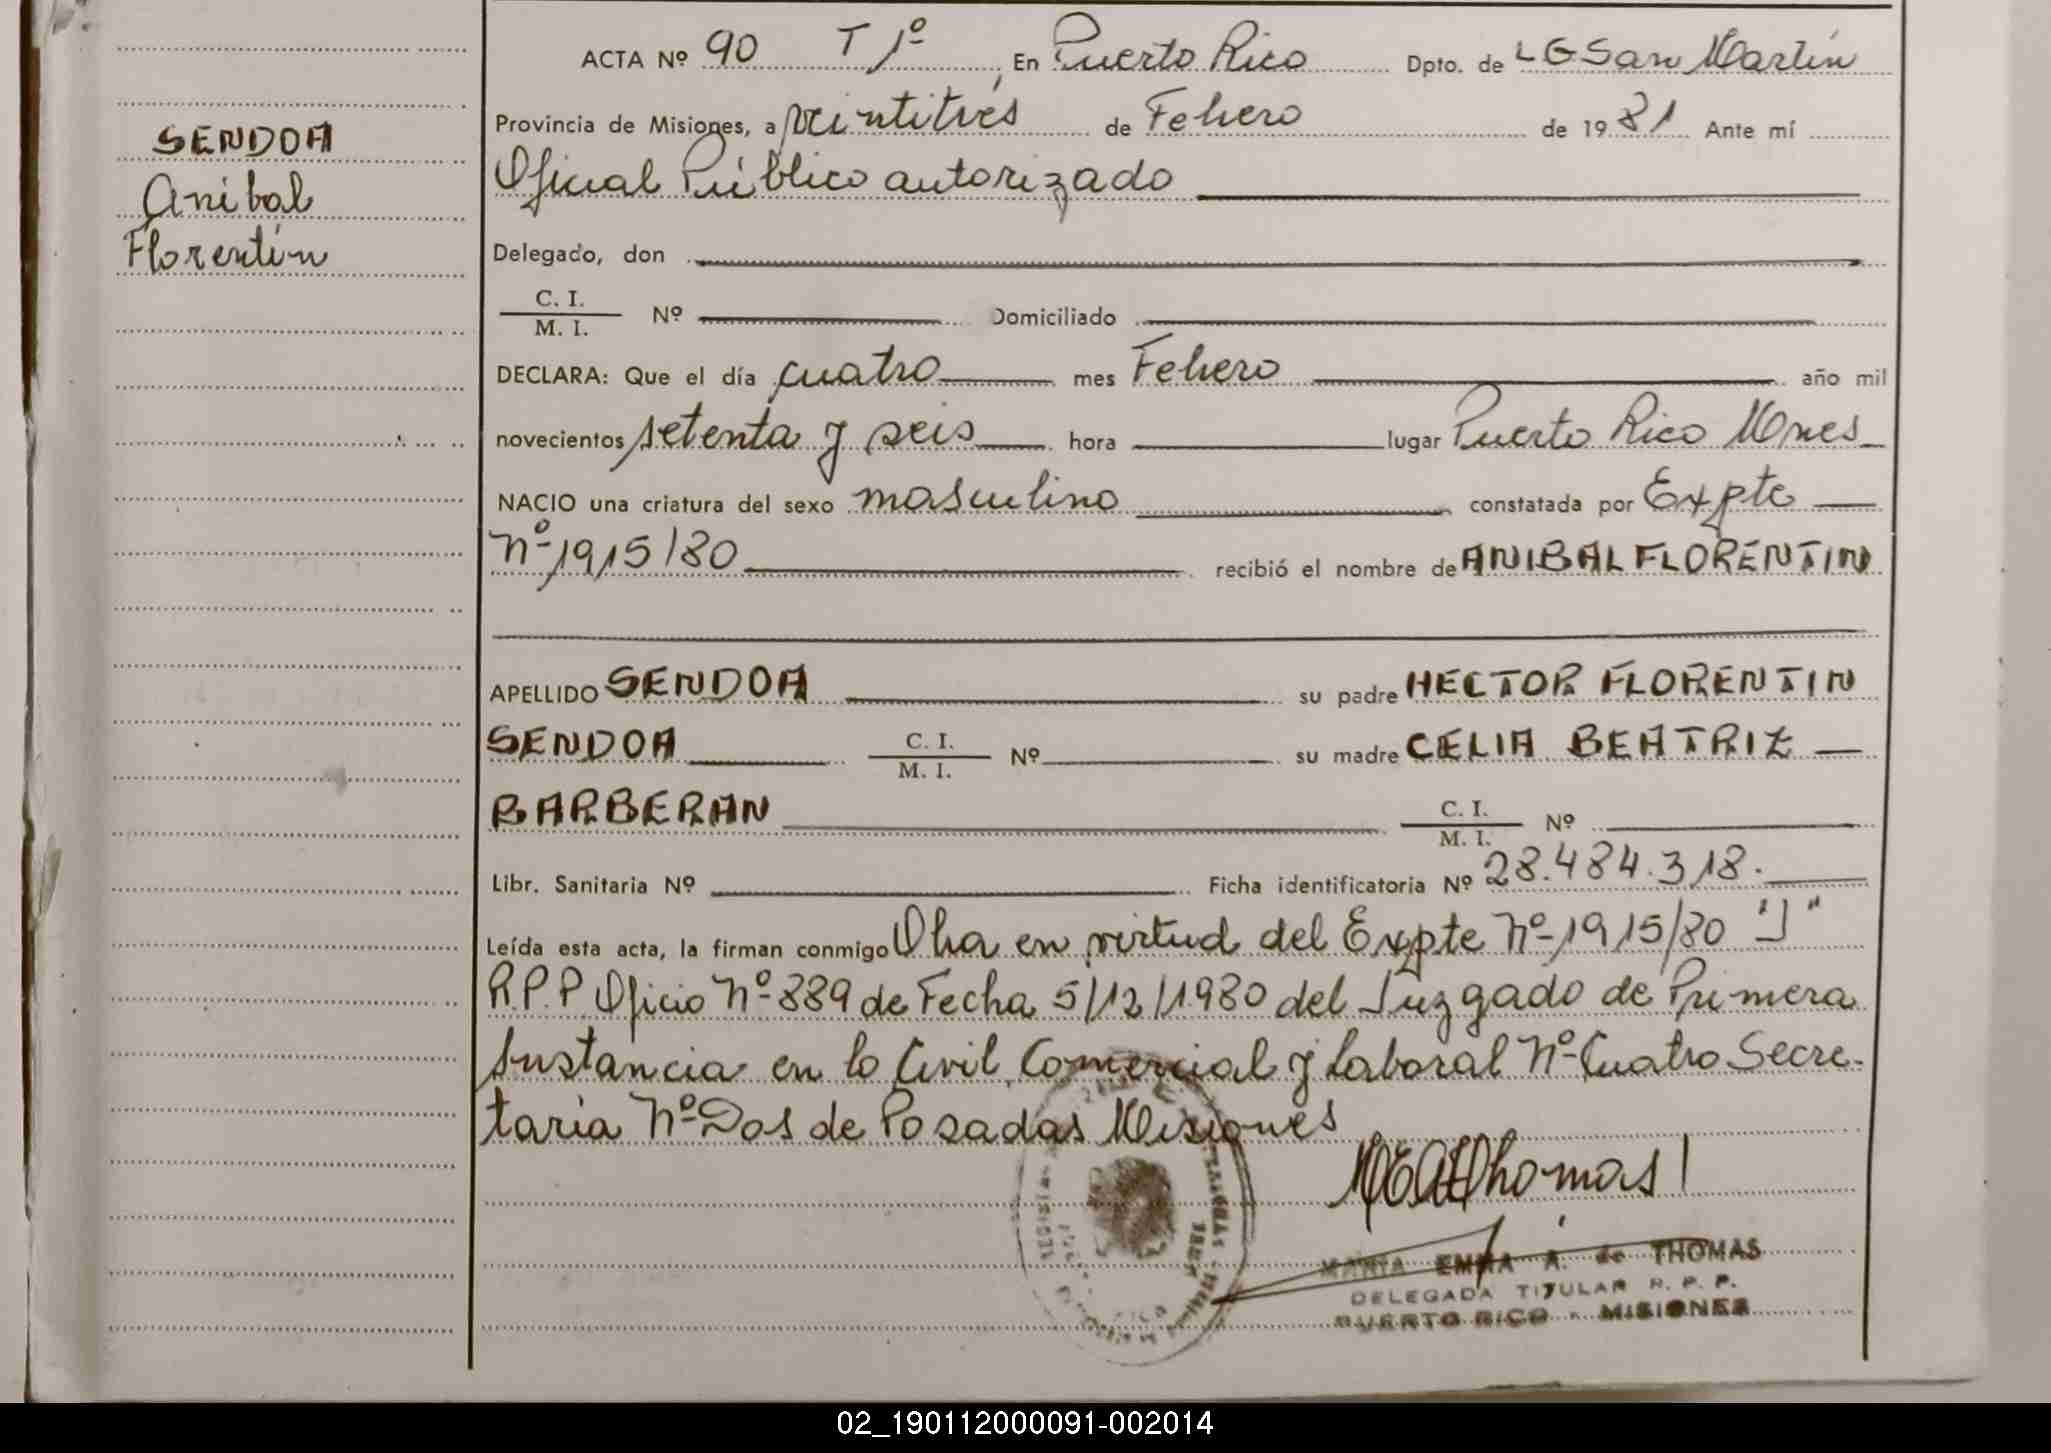 ACTA Nº 90 T 1º En Puerto Rico Dpto. de L G San Martín
Provincia de Misiones, a veintitres de Febrero de 1981 Ante mí
Oficial Público autorizado
SENDOA
Anibal
Florentín
Delegado, don
C. I.
M. I. Nº Domiciliado
DECLARA: Que el día cuatro mes Febrero año mil
novecientos setenta y seis hora lugar Puerto Rico Mnes
NACIO una criatura del sexo masculino constatada por Expte
Nº 1915/80 recibió el nombre de ANIBAL FLORENTIN
APELLIDO SENDOA su padre HECTOR FLORENTIN
SENDOA C. I. M. I. Nº su madre CELIA BEATRIZ
BARBERAN C. I. M. I. Nº
Libr. Sanitaria Nº Ficha identificatoria Nº 28.484.318.
Leída esta acta, la firman conmigo Obra en virtud del Expte Nº 1915/80 "J"
R.P.P Oficio Nº 889 de Fecha 5/12/1980 del Juzgado de Primera
Instancia en lo Civil Comercial y Laboral Nº Cuatro Secre-
taria Nº Dos de Posadas Misiones
MEAThomas
MARIA EMMA A. de THOMAS
DELEGADA TITULAR R. P. P.
PUERTO RICO - MISIONES
02_190112000091-002014